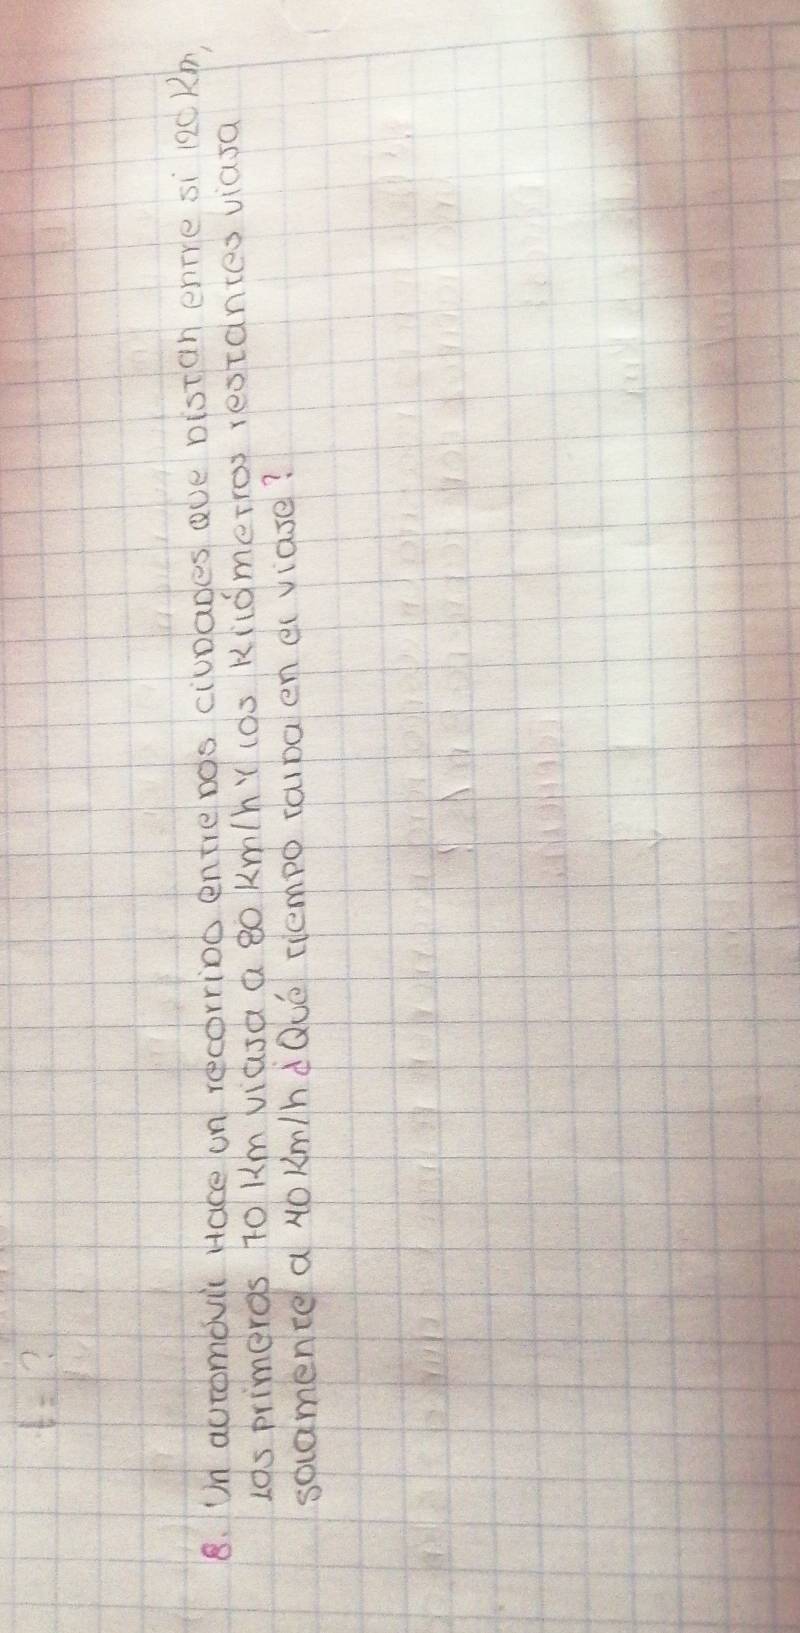 t = ?
8. Un automóvil Hace un recorrido entre dos ciudades que distan entre si 120 Km,
Los primeros 70 Km viaja a 80 Km/h Y los Kilómetros restantes viaja
solamente a 40 Km/h ¿Qué tiempo tarda en el viaje?